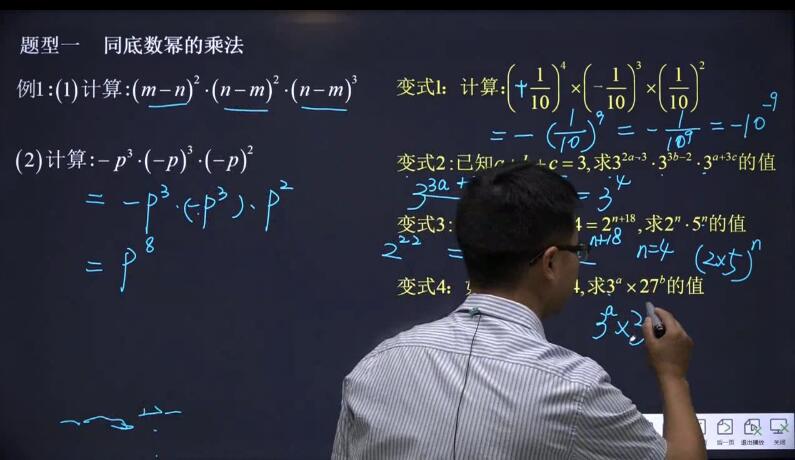 题型一 同底数幂的乘法
例1:(1)计算:(m−n)²·(n−m)²·(n−m)³
(2)计算:−p³·(−p)³·(−p)²
= −p³·(−p³)·p²
= p⁸
变式1: 计算:(+1/10)⁴×(−1/10)³×(1/10)²
= −(1/10)⁹ = −1/10⁹ = −10⁻⁹
变式2:已知a+b+c=3,求3²ᵃ⁻³·3³ᵇ⁻²·3ᵃ⁺³ᶜ的值
3³ᵃ⁺ = 3⁴
变式3: 4=2ⁿ⁺¹⁸,求2ⁿ·5ⁿ的值
2²² = ⁿ⁺¹⁸ n=4 (2×5)ⁿ
变式4: 4,求3ᵃ×27ᵇ的值
3ᵃ×
后一页 退出播放 关闭